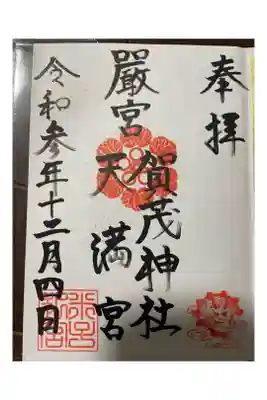 奉拝
嚴宮
賀茂神社
天満宮
令和参年十二月四日